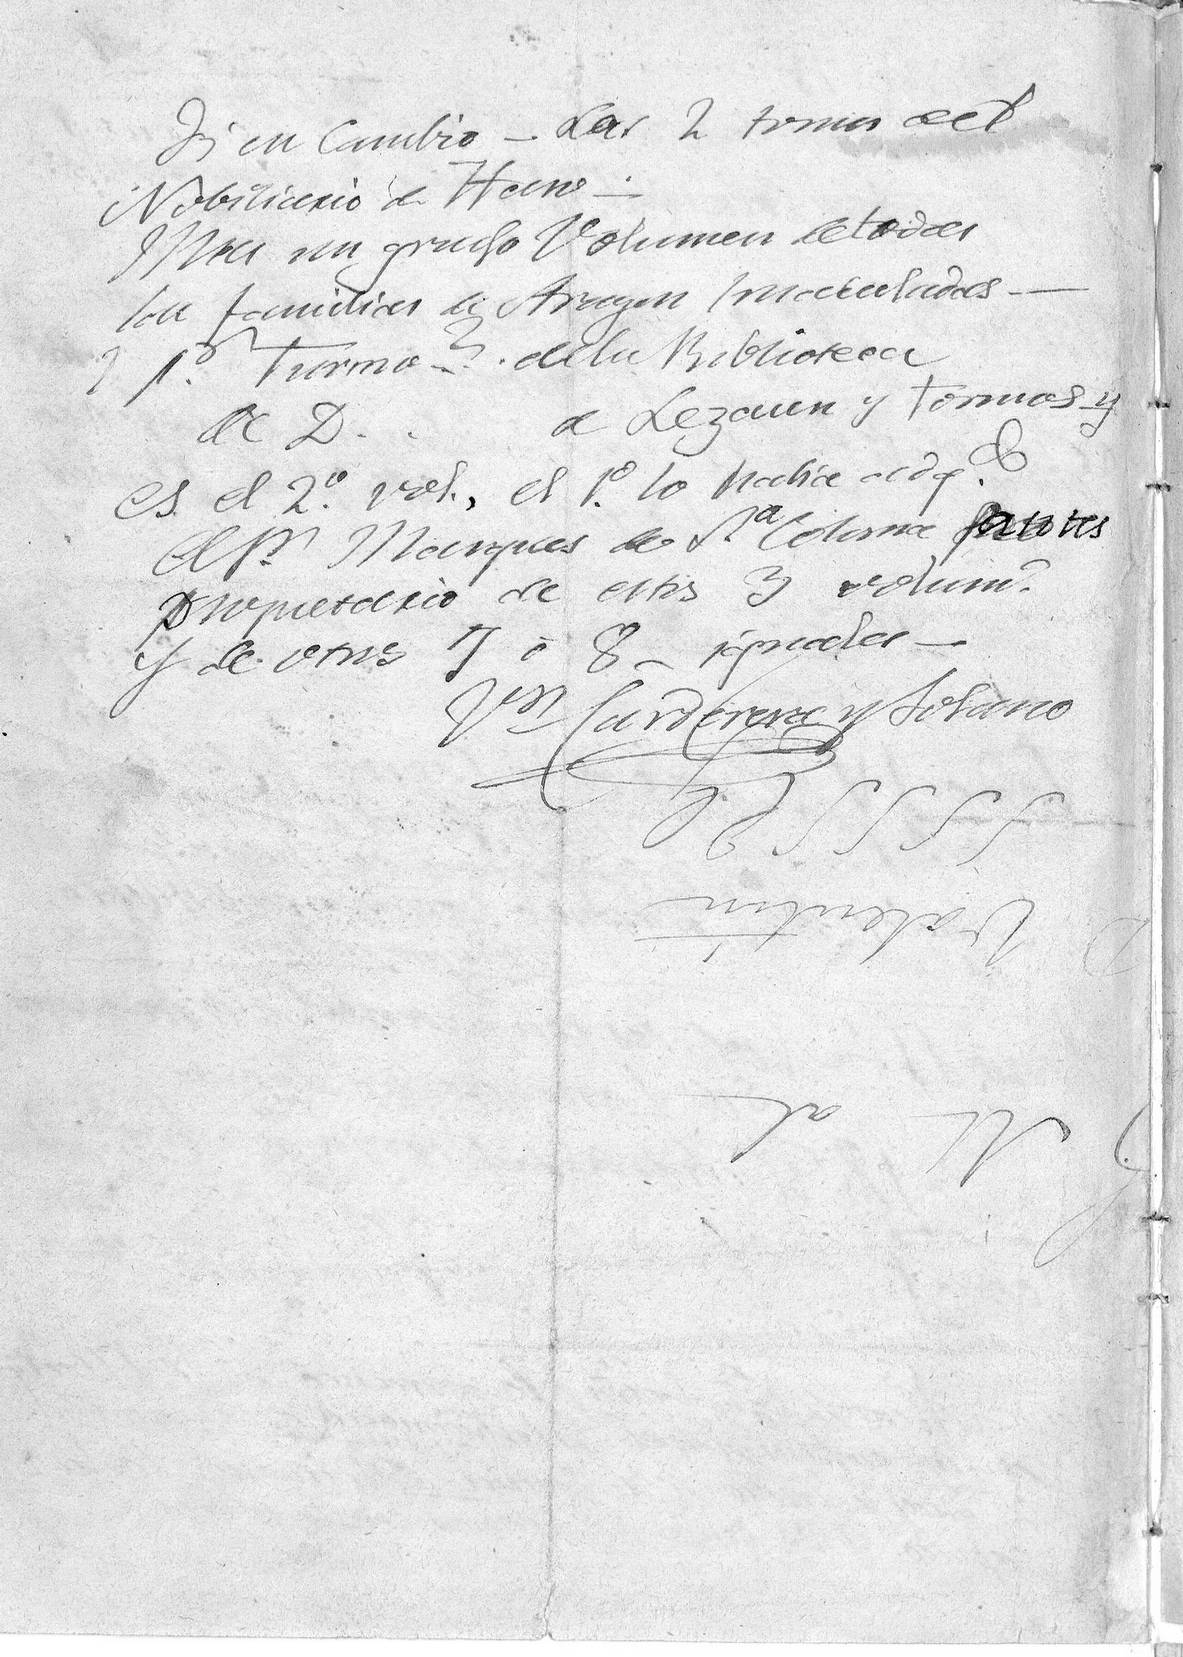 Di en Cambio – Los 2 tomos del
Nobiliario de Haro –
Mas un grueso Volumen de todas
las familias de Aragon
1.º Turmo de la Biblioteca
de D. . de Lezaun y Tornos y
es el 2.º vol., el 1.º lo habia adq.do
el Sr Marques de Sta Coloma antes
propietario de estos 3 volum.s
y de otros 7 ó 8 – iguales –
Vn Carderera y Solano
Valentin
Al